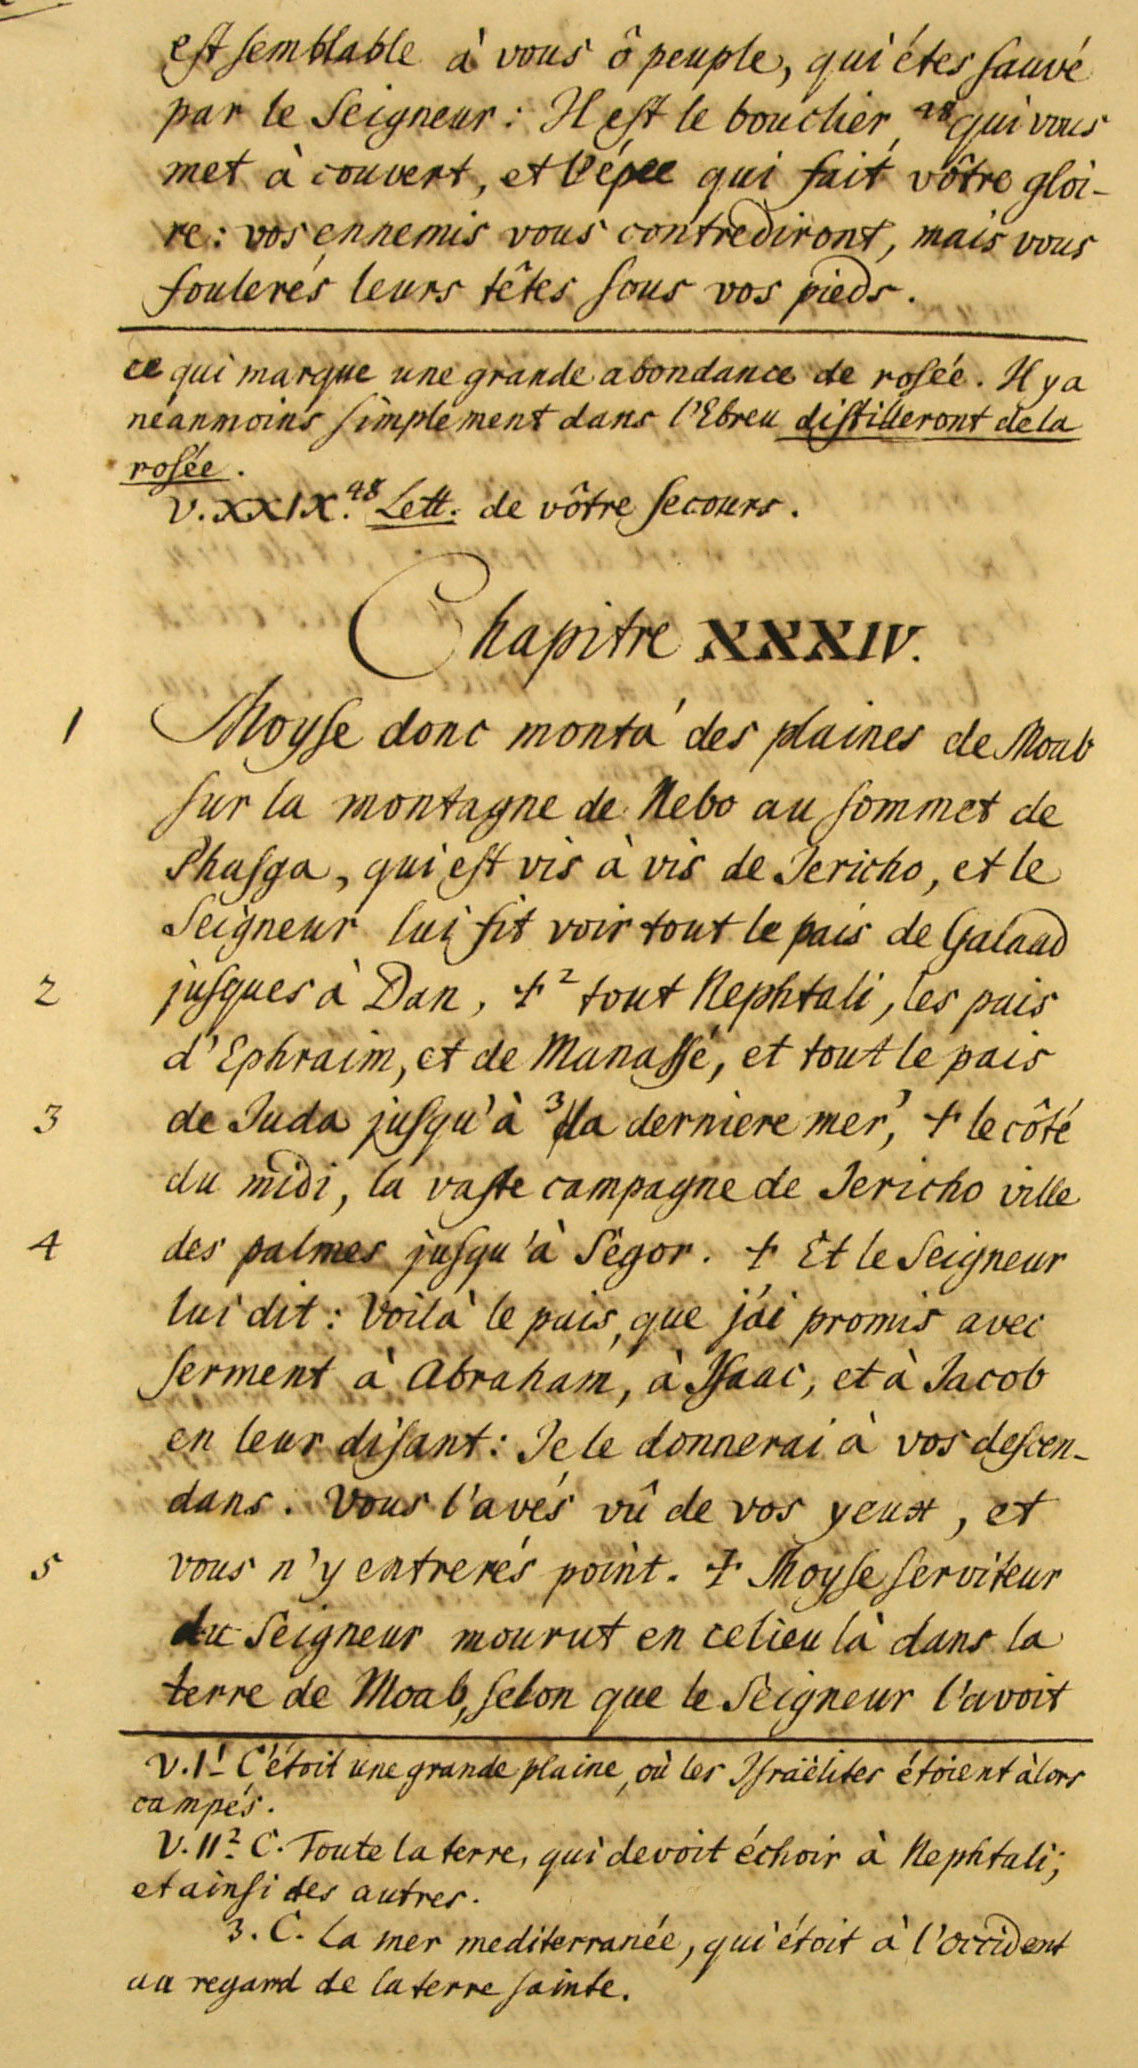 est semblable à vous ô peuple, qui étes sauvé
par le Seigneur: Il est le bouclier, 48 qui vous
met à couvert, et l'épee qui fait vôtre gloi-
re: vos ennemis vous contrediront, mais vous
foulerés leurs têtes sous vos pieds.
ce qui marque une grande abondance de rosée. Il y a
néanmoins simplement dans l'Ebreu distilleront de la
rosée.
V. XXIX. 48 Lett. de vôtre secours.
Chapitre XXXIV.
1 Moyse donc monta 1 des plaines de Moab
sur la montagne de Nebo au sommet de
Phasga, qui est vis à vis de Jericho, et le
Seigneur lui fit voir tout le païs de Galaad
2 jusques à Dan, + 2 tout Nephtali, les païs
d'Ephraim, et de Manassé, et tout le païs
3 de Juda jusqu'à 3 la derniere mer, + le côté
du midi, la vaste campagne de Jericho ville
4 des palmes jusqu'à Ségor. + Et le Seigneur
lui dit: Voilà le païs, que j'ai promis avec
serment à Abraham, à Isaac, et à Jacob
en leur disant: Je le donnerai à vos descen-
dans. Vous l'avés vû de vos yeux, et
5 vous n'y entrerés point. + Moyse serviteur
du Seigneur mourut en ce lieu là dans la
terre de Moab, selon que le Seigneur l'avoit
V. I 1 C'étoit une grande plaine, où les Israëlites étoient àlors
campés.
V. II 2 C. Toute la terre, qui devoit échoir à Nephtali;
et ainsi des autres.
3. C. La mer mediterranée, qui étoit à l'occident
au regard de la terre sainte.